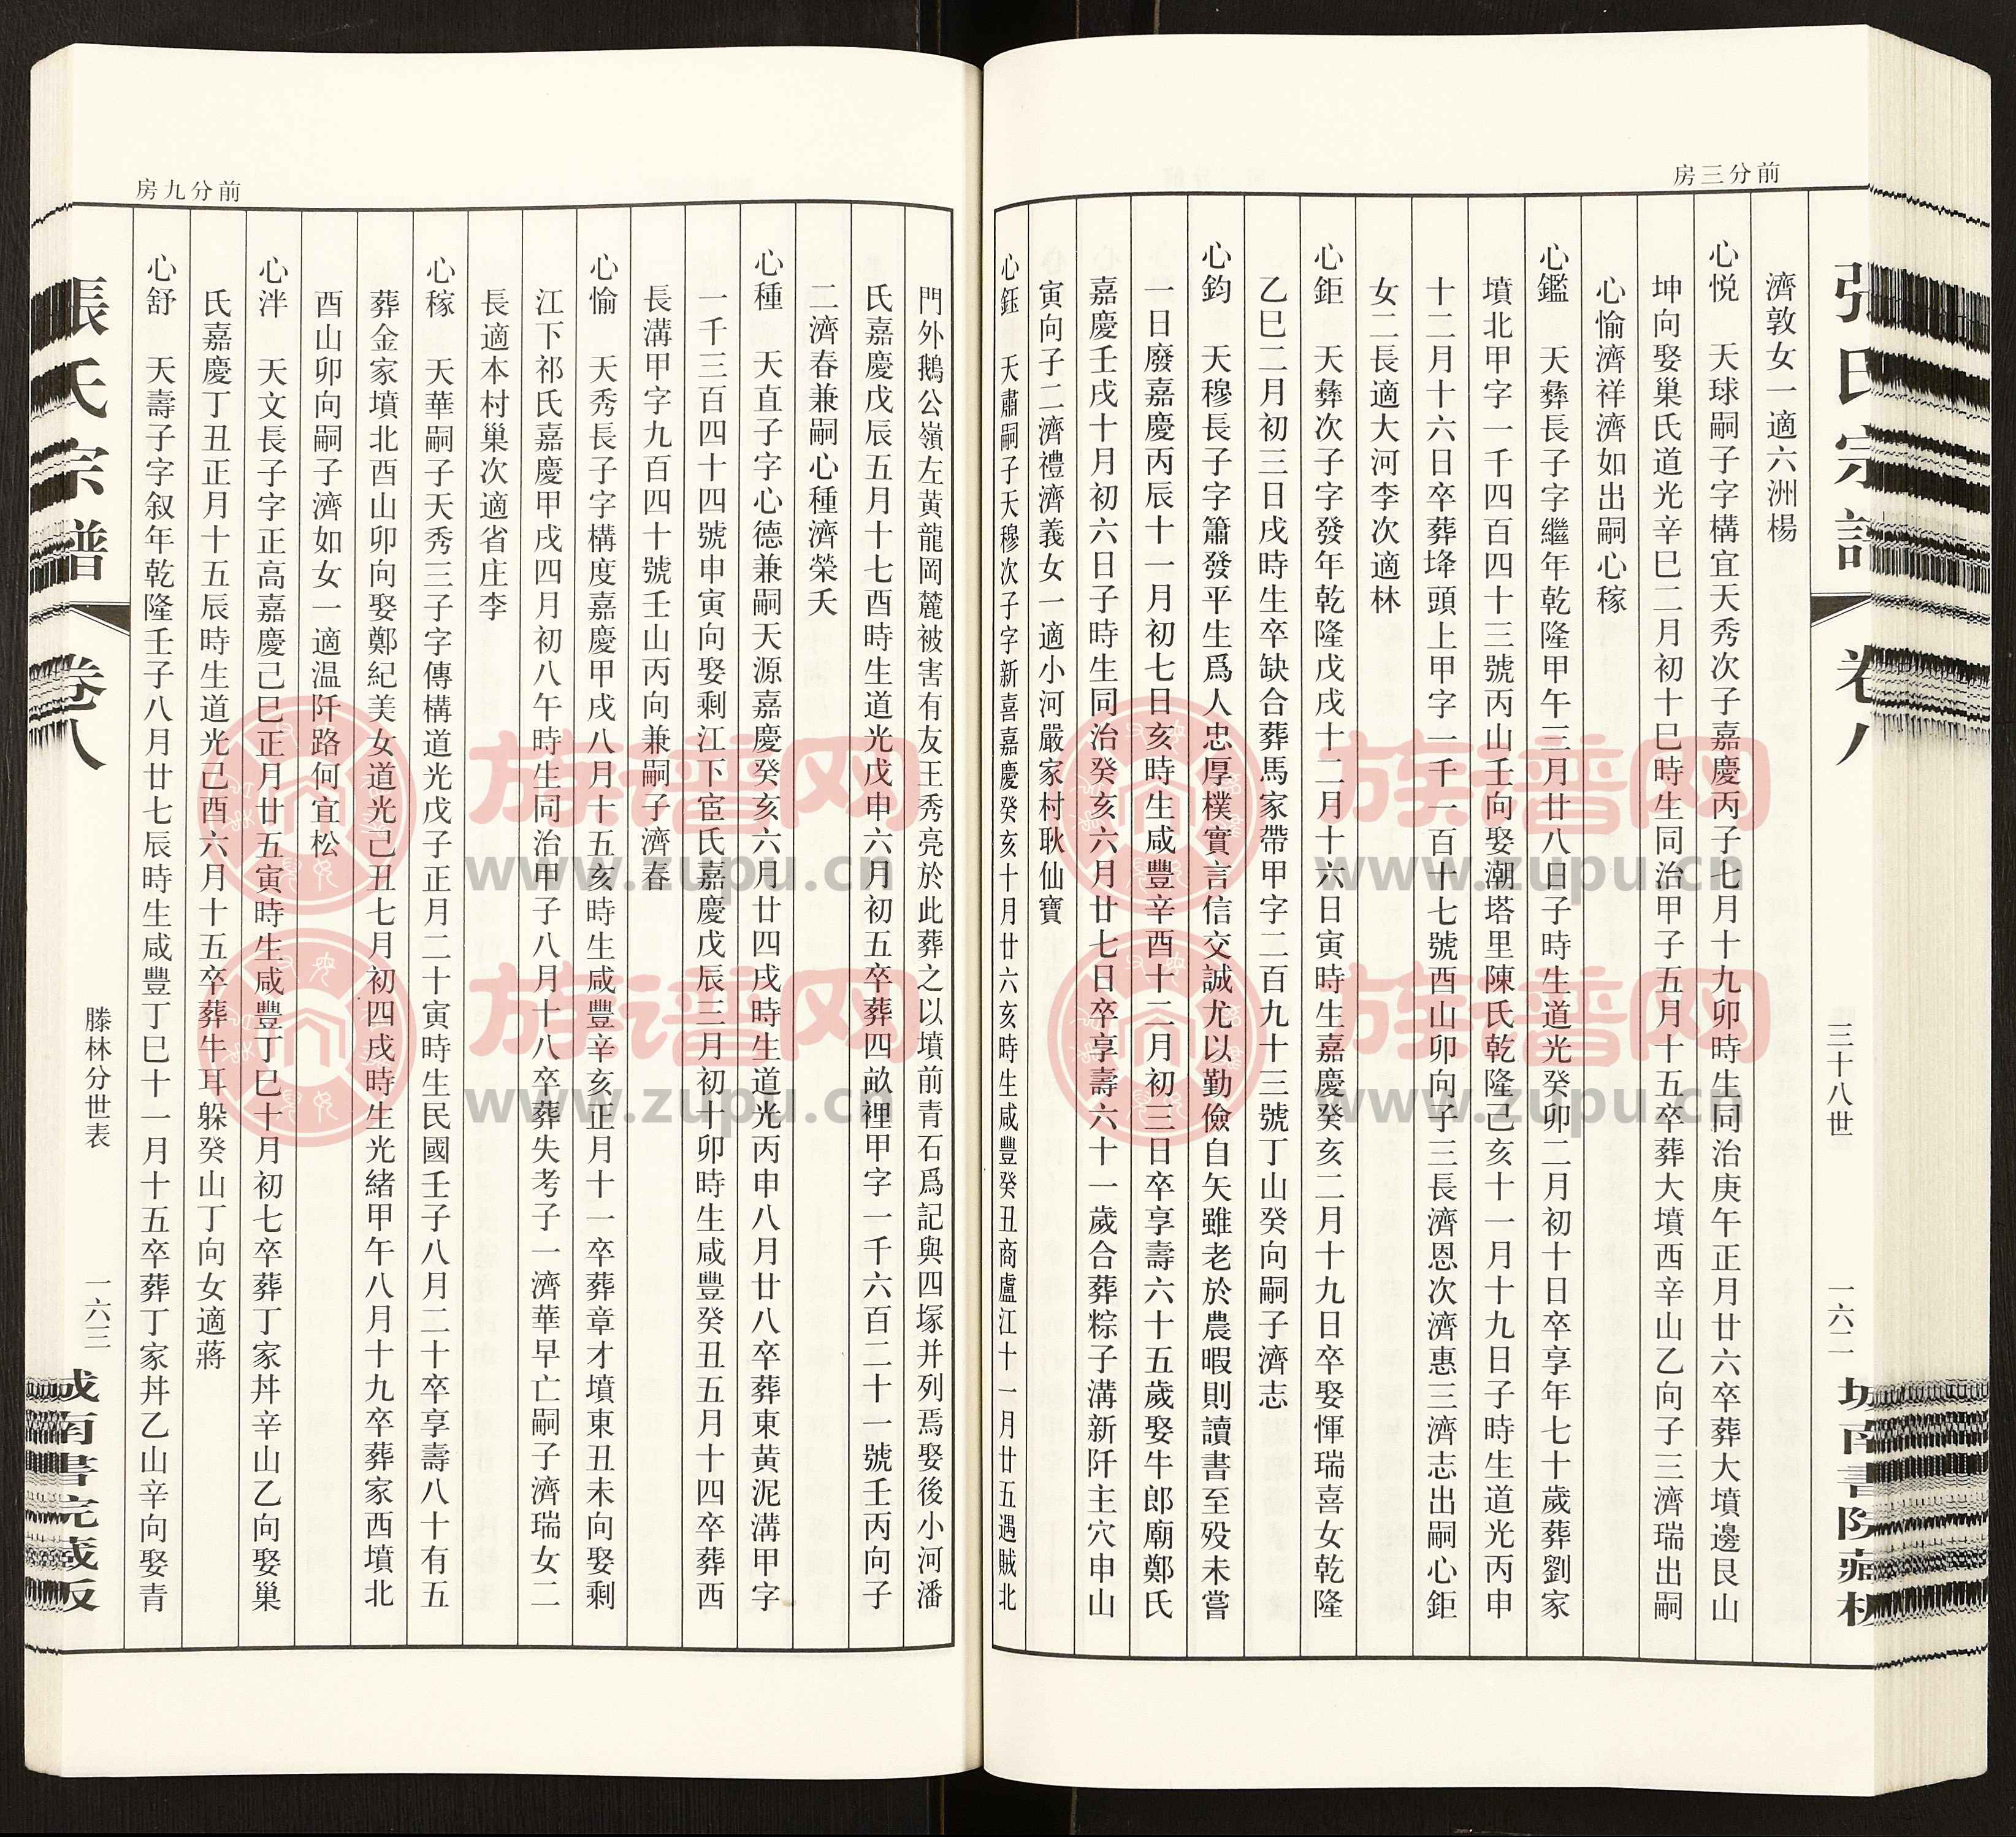 前分三房
張氏宗譜
卷八
三十八世
一六二
城南書院藏板
濟敦女一適六洲楊
心悅　天球嗣子字構宜天秀次子嘉慶丙子七月十九卯時生同治庚午正月廿六卒葬大墳邊艮山
坤向娶巢氏道光辛巳二月初十巳時生同治甲子五月十五卒葬大墳西辛山乙向子三濟瑞出嗣
心愉濟祥濟如出嗣心稼
心鑑　天彝長子字繼年乾隆甲午三月廿八日子時生道光癸卯二月初十日卒享年七十歲葬劉家
墳北甲字一千四百四十三號丙山壬向娶潮塔里陳氏乾隆己亥十一月十九日子時生道光丙申
十二月十六日卒葬埄頭上甲字一千一百十七號酉山卯向子三長濟恩次濟惠三濟志出嗣心鉅
女二長適大河李次適林
心鉅　天彝次子字發年乾隆戊戌十二月十六日寅時生嘉慶癸亥二月十九日卒娶惲瑞喜女乾隆
乙巳二月初三日戌時生卒缺合葬馬家帶甲字二百九十三號丁山癸向嗣子濟志
心鈞　天穆長子字簫發平生爲人忠厚樸實言信交誠尤以勤儉自矢雖老於農暇則讀書至歿未嘗
一日廢嘉慶丙辰十一月初七日亥時生咸豐辛酉十二月初三日卒享壽六十五歲娶牛郎廟鄭氏
嘉慶壬戌十月初六日子時生同治癸亥六月廿七日卒享壽六十一歲合葬粽子溝新阡主穴申山
寅向子二濟禮濟義女一適小河嚴家村耿仙寶
心鈺　天肅嗣子天穆次子字新喜嘉慶癸亥十月廿六亥時生咸豐癸丑商廬江十一月廿五遇賊北
前分九房
門外鵝公嶺左黃龍岡麓被害有友王秀亮於此葬之以墳前青石爲記與四塚并列焉娶後小河潘
氏嘉慶戊辰五月十七酉時生道光戊申六月初五卒葬四畝裡甲字一千六百二十一號壬丙向子
二濟春兼嗣心種濟榮夭
心種　天直子字心德兼嗣天源嘉慶癸亥六月廿四戌時生道光丙申八月廿八卒葬東黃泥溝甲字
一千三百四十四號申寅向娶剩江下宦氏嘉慶戊辰三月初十卯時生咸豐癸丑五月十四卒葬西
長溝甲字九百四十號壬山丙向兼嗣子濟春
心愉　天秀長子字構度嘉慶甲戌八月十五亥時生咸豐辛亥正月十一卒葬章才墳東丑未向娶剩
江下祁氏嘉慶甲戌四月初八午時生同治甲子八月十八卒葬失考子一濟華早亡嗣子濟瑞女二
長適本村巢次適省庄李
心稼　天華嗣子天秀三子字傳構道光戊子正月二十寅時生民國壬子八月二十卒享壽八十有五
葬金家墳北酉山卯向娶鄭紀美女道光己丑七月初四戌時生光緒甲午八月十九卒葬家西墳北
酉山卯向嗣子濟如女一適温阡路何宜松
心泮　天文長子字正高嘉慶己巳正月廿五寅時生咸豐丁巳十月初七卒葬丁家丼辛山乙向娶巢
氏嘉慶丁丑正月十五辰時生道光己酉六月十五卒葬牛耳躲癸山丁向女適蔣
心舒　天壽子字叙年乾隆壬子八月廿七辰時生咸豐丁巳十一月十五卒葬丁家丼乙山辛向娶青
張氏宗譜
卷八
滕林分世表
一六三
城南書院藏板
族谱网
www.zupu.cn
族谱网
www.zupu.cn
族谱网
www.zupu.cn
族谱网
www.zupu.cn